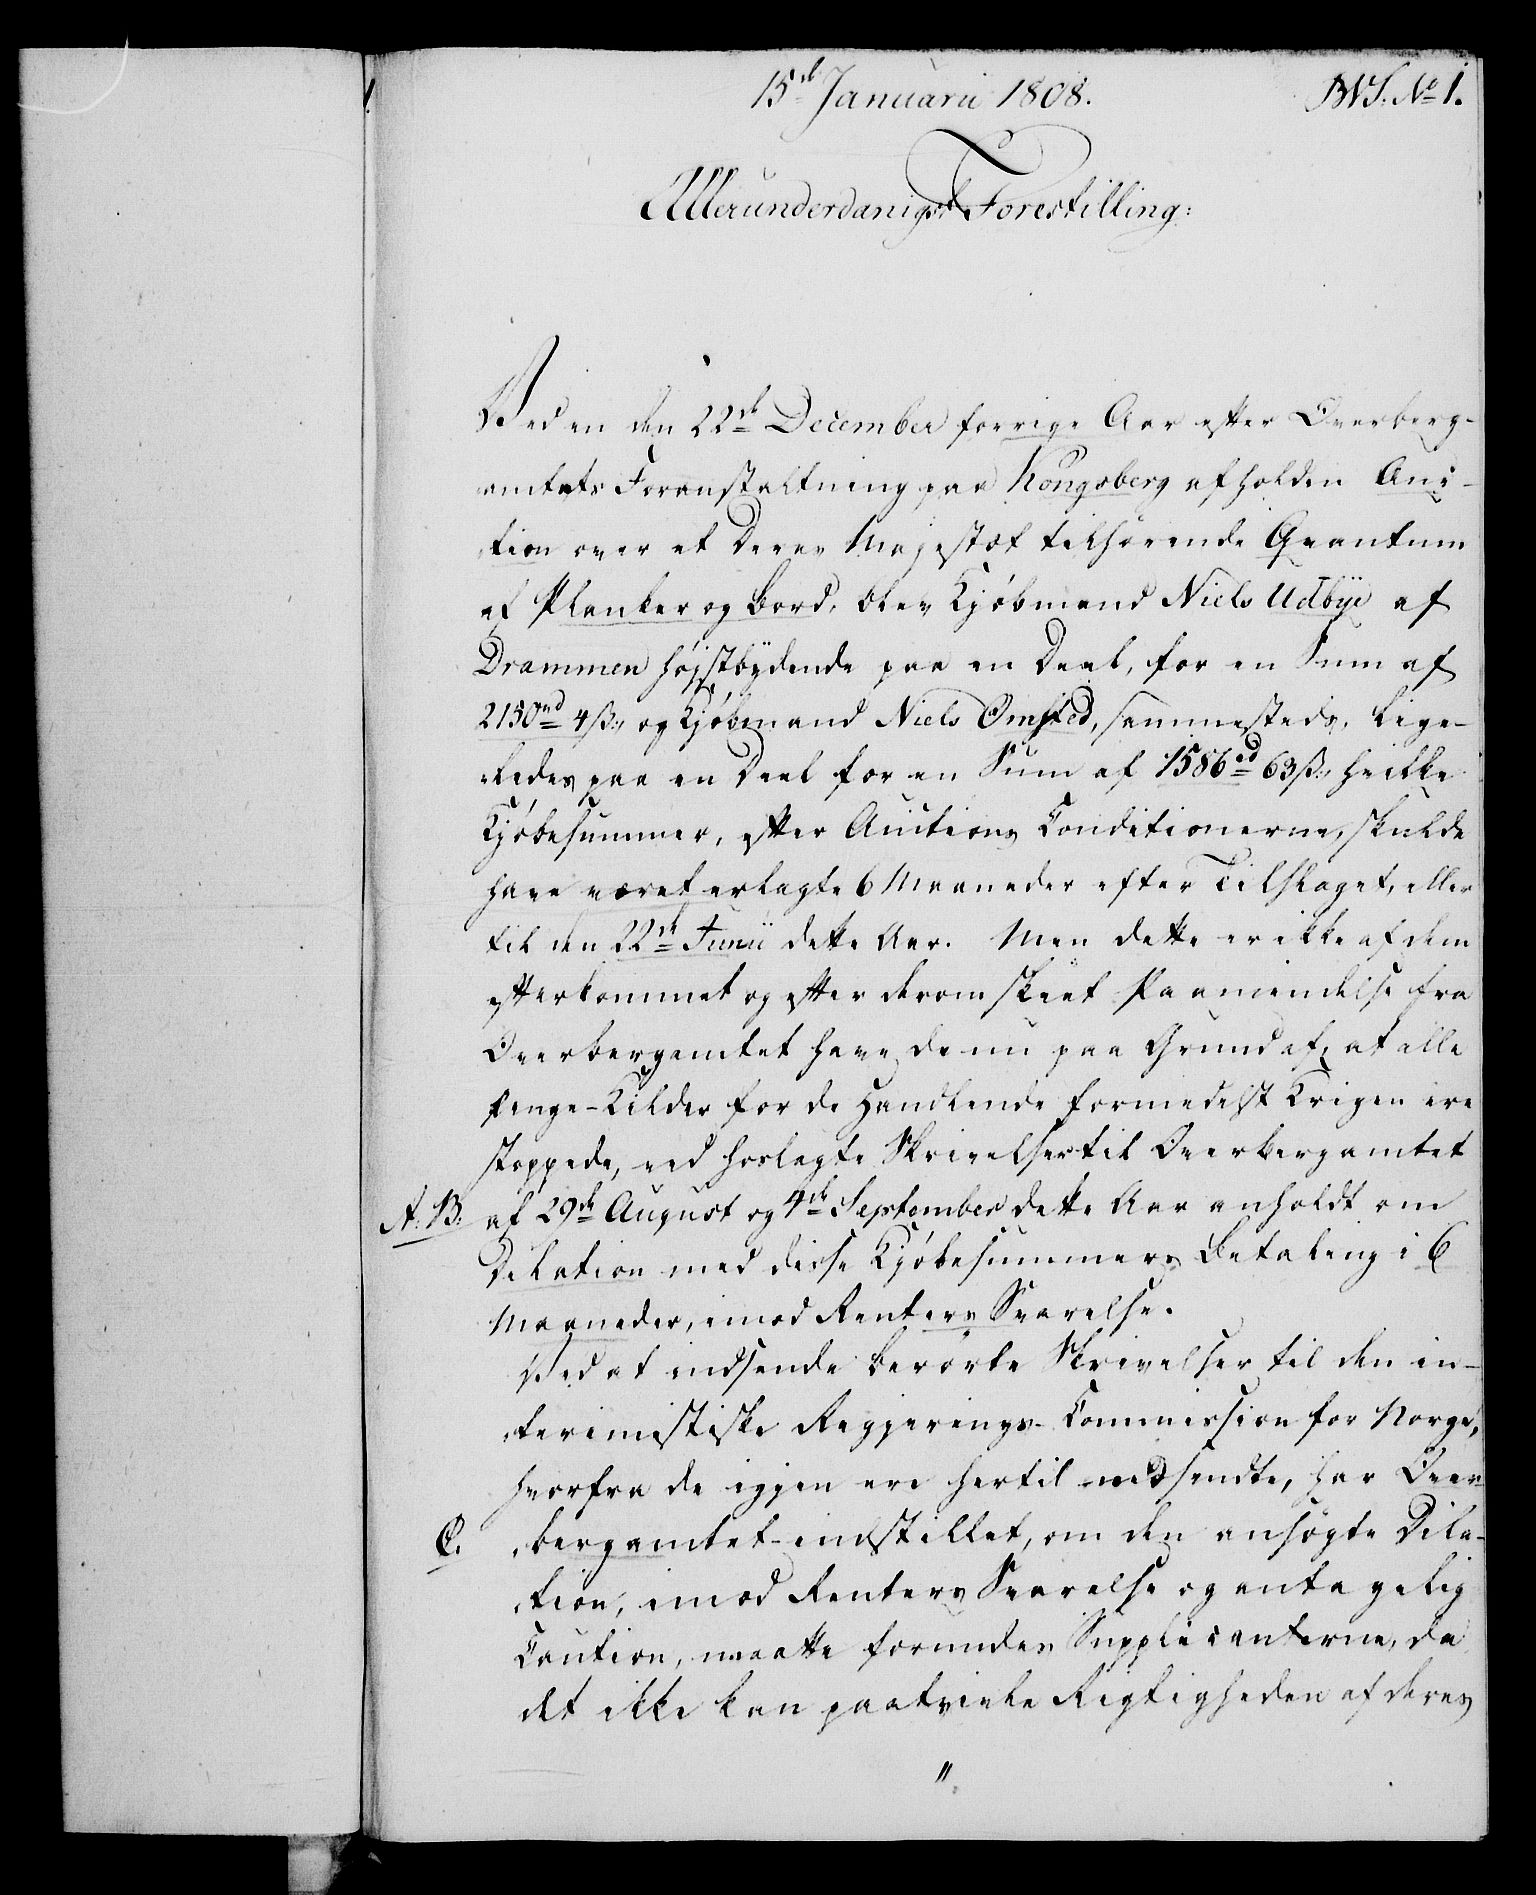 15de Januarii 1808.
BWS. No 1.
Allerunderdanigst Forestilling:
Ved en den 22de December forrige Aar efter Overberg-
amtets Foranstaltning paa Kongsberg afholden Auc-
tion over et Deres Majestæt tilhørende Qvantum
af Planker og Bord, blev Kjøbmand Niels Udbye af
Drammen højstbydende paa en Deel, for en Sum af
2150rd 4ß, og Kjøbmand Niels Omsted, sammesteds, lige-
ledes paa en Deel for en Sum af 1586rd 63ß, hvilke
Kjøbesummer, efter Auctions Conditionerne, skulde
have været erlagte 6 Maaneder efter Tilslaget, eller
til den 22de Junii dette Aar. Men dette er ikke af dem
efterkommet og efter derom skeet Paamindelse fra
Overbergamtet have de nu paa Grund af, at alle
Penge-Kilder for de Handlende formedelst Krigen ere
stoppede, ved hoslagte Skrivelser til Overbergamtet
A: B: af 29de August og 4de September dette Aar anholdt om
Dilation med disse Kjøbesummers Betaling i 6
Maaneder, imod Renters Svarelse.
Ved at indsende berørte Skrivelser til den in-
terimistiske Regjerings-Commission for Norge,
hvorfra de igjen ere hertil nedsendte, har Over-
C. bergamtet indstillet, om den ansøgte Dila-
tion, imod Renters Svarelse og antagelig
Caution, maatte forundes Supplicanterne, da
det ikke kan paatvivle Rigtigheden af deres
"